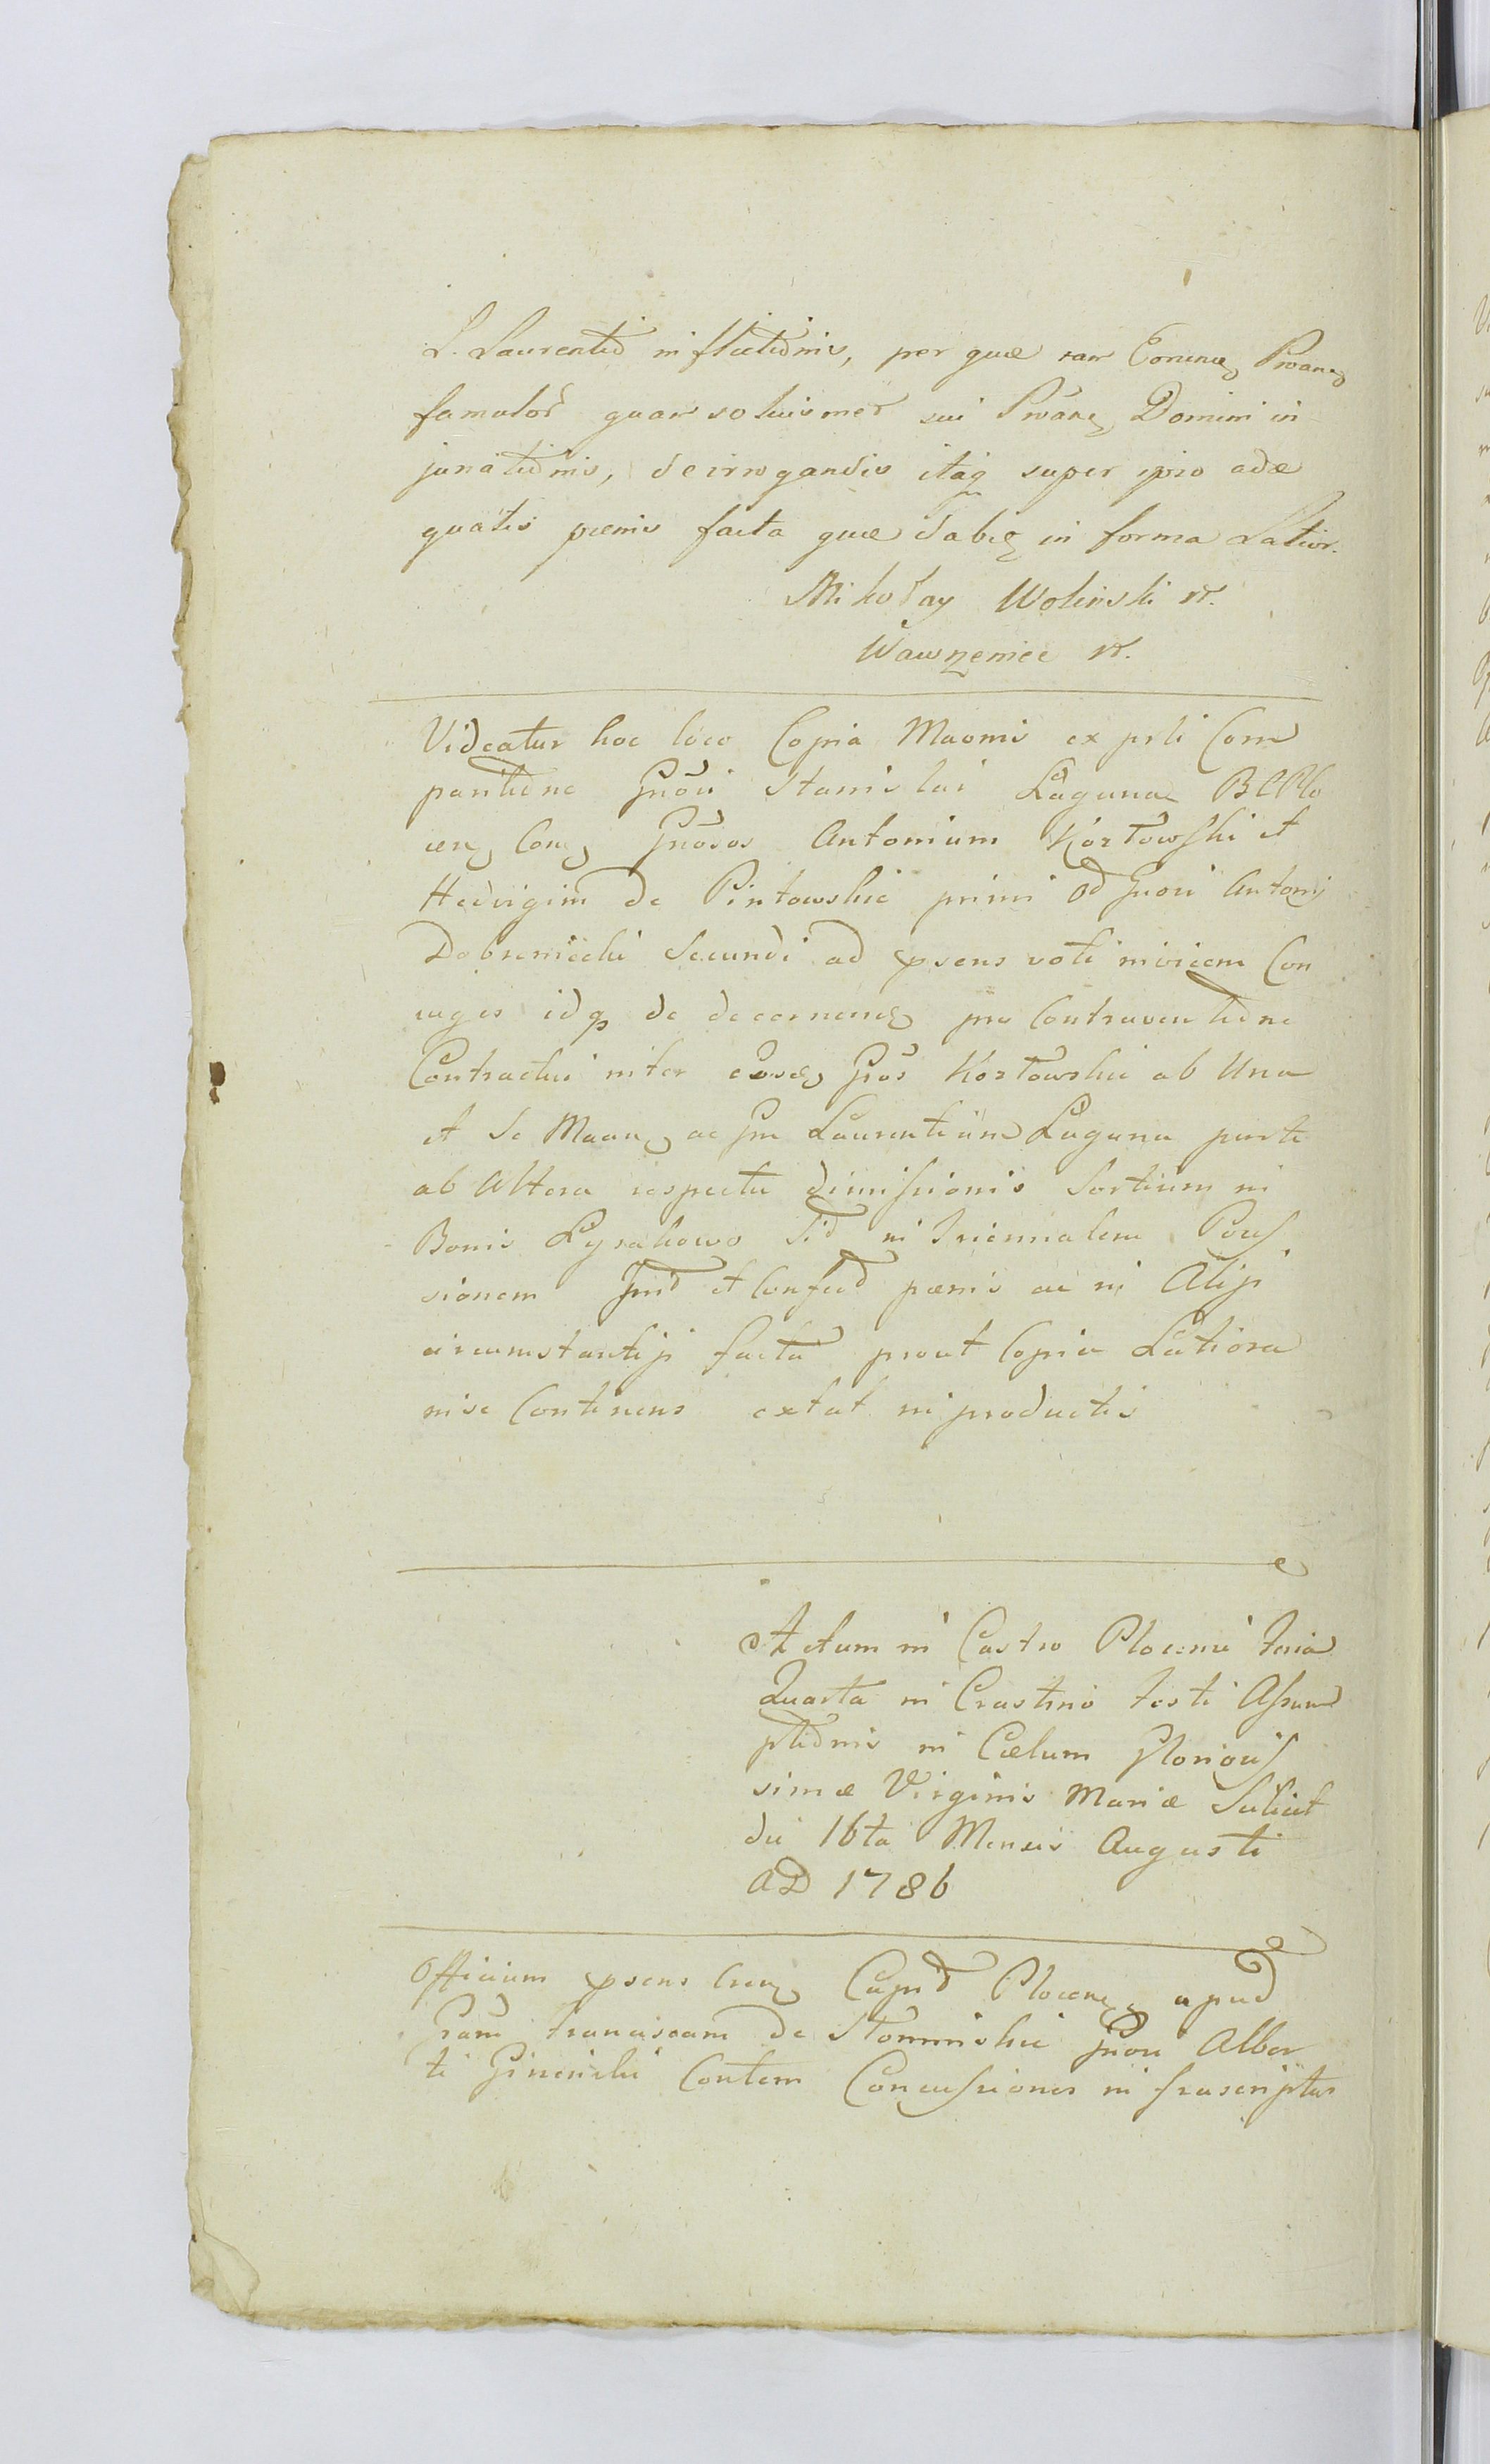 L. Laurentio inflictionis, per quæ tam Eorund Proano
famulor quam solius met sui Proane Domini in
juriationis, de irrogandis itaq super ipso adæ
quatis pœnis facta quæ dabis in forma Latior.
Mikołay Woliński
Wawrzeniec
Videatur hoc loco Copia Maonis ex prti Com
paritione Gnosi Stanislai Laguna BCPlo
cen Con Gnosos Antonium Kozłowski et
Hedvigim de Pintowskie primi od Gnosi Antonij
Dobrenicchi Secundi ad psens voti invicem Con
iuges idq de decernend pro Contraventione
Contractui inter eosd Gnos Kozłowskie ab Una
et se Maan ac Gm Laurentium Laguna parte
ab Altera respectu dimissionis Sortium in
Bonis Łysakowo Sic in Triennalem Pous
sionem et pœnis ac in Alijs
circumstantijs facta prout Copia Latiora
in se Continens extat in productis
Actum in Castro Plocensi Feria
Quarta in Crastino Festi Assum
ptionis in Cælum Gloriosis
simæ Virginis Mariæ Scilicet
die 16ta Mensis Augusti
AD 1786
Officium psens Cren Capit Plocen apud
Gsam Franciscam de Słominskie Gnosi Alber
ti Contem Concussiones infrascriptas